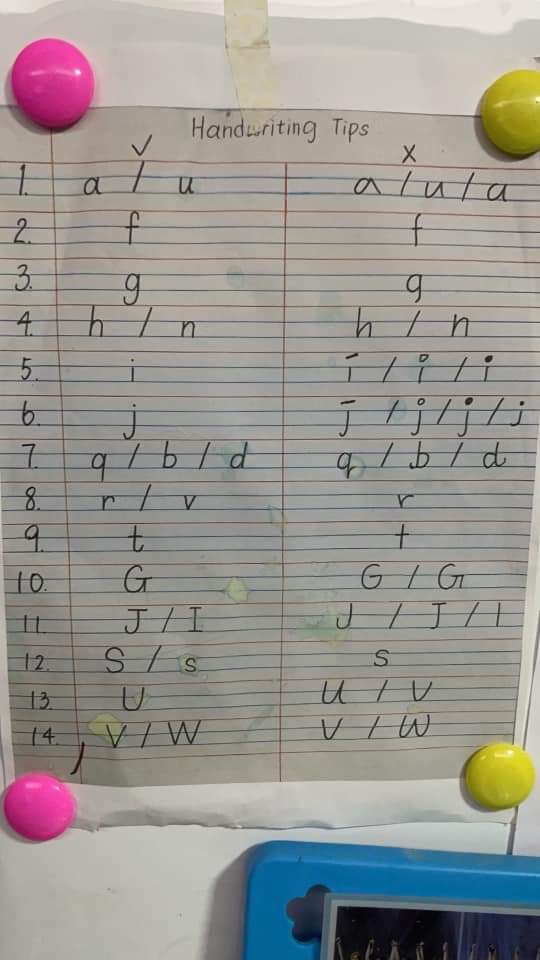 Handwriting Tips
✓ X
1. a / u a / u / a
2. f f
3. g g
4. h / n h / n
5. i i / i / i
6. j j / j / j / j
7. q / b / d q / b / d
8. r / v r
9. t t
10. G G / G
11. J / I J / J / l
12. S / s s
13. U U / V
14. V / W V / W